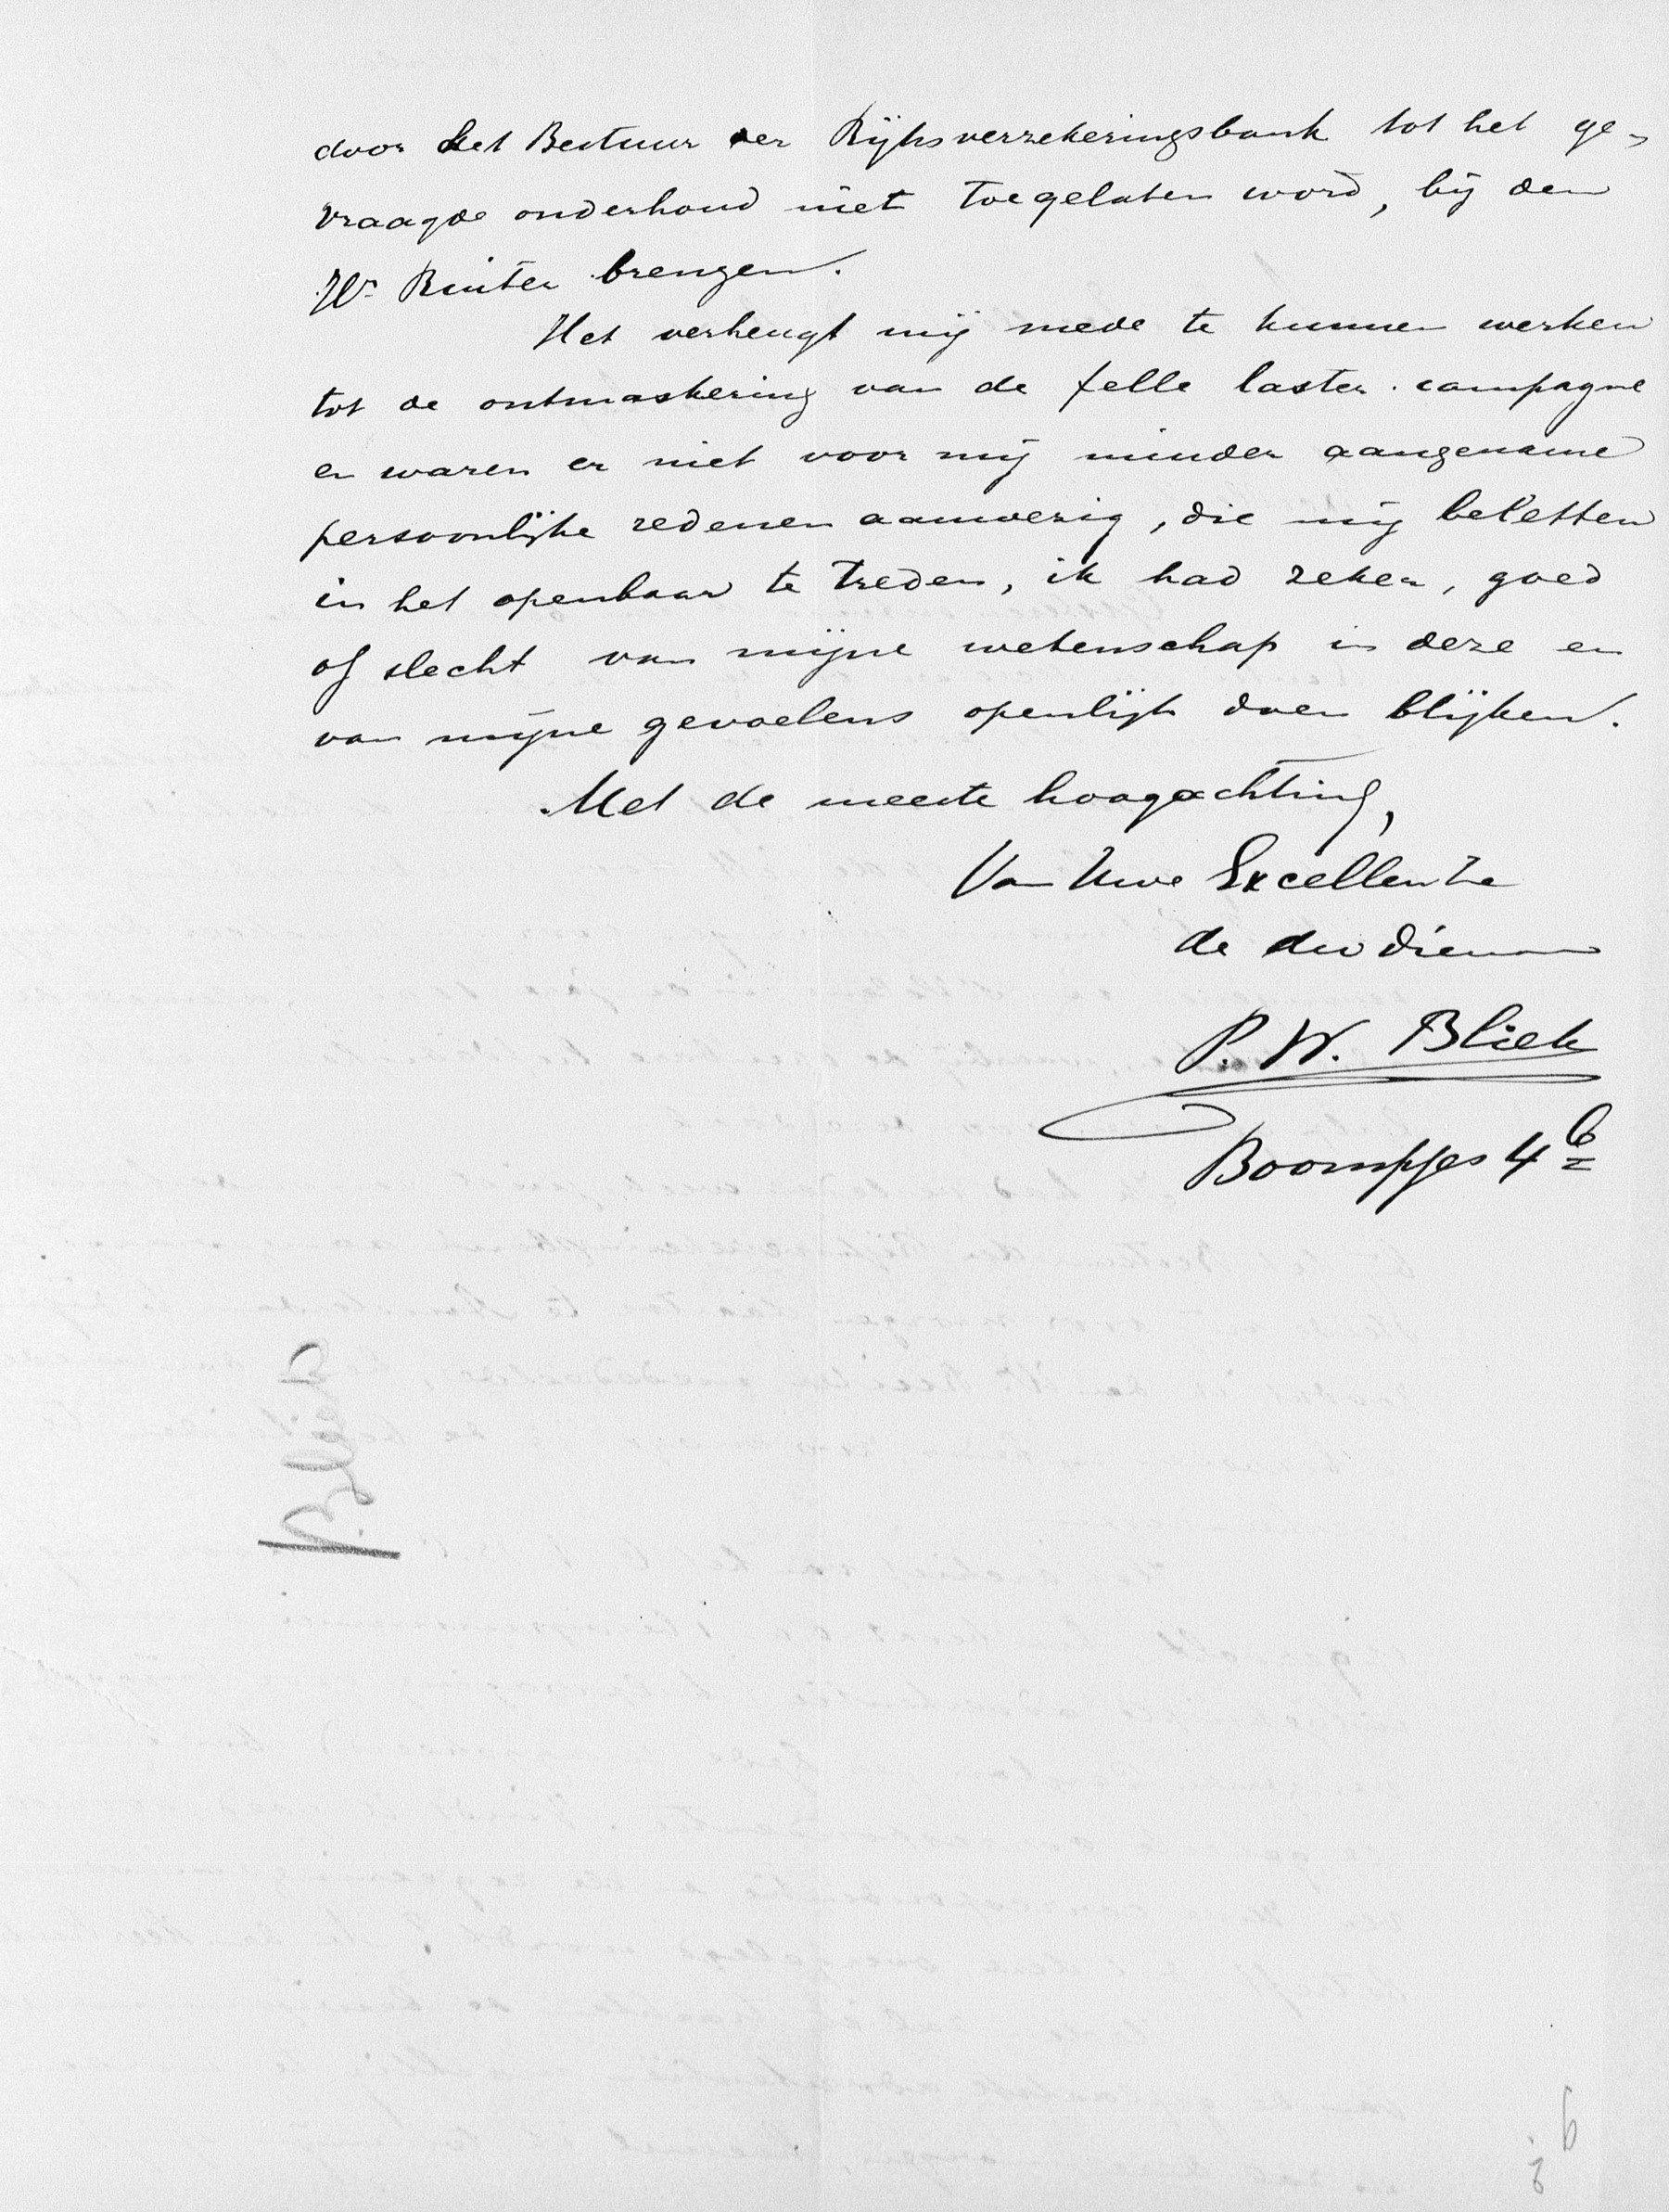 door het Bestuur der Rijksverzekeringsbank tot het ge-
vraagde onderhoud niet toegelaten word, bij den
Hr Ruiter brengen.
Het verheugt mij mede te kunnen werken
tot de ontmaskering van de felle laster campagne
en waren er niet voor mij minder aangename
persoonlijke redenen aanwezig, die mij beletten
in het openbaar te treden, ik had zeker, goed
of slecht van mijne wetenschap in deze en
van mijne gevoelens openlijk doen blijken.
Met de meeste hoogachting,
Van Uwe Excellentie
de dw dienaar
P. W. Bliek
Boompjes 4b
Bliek